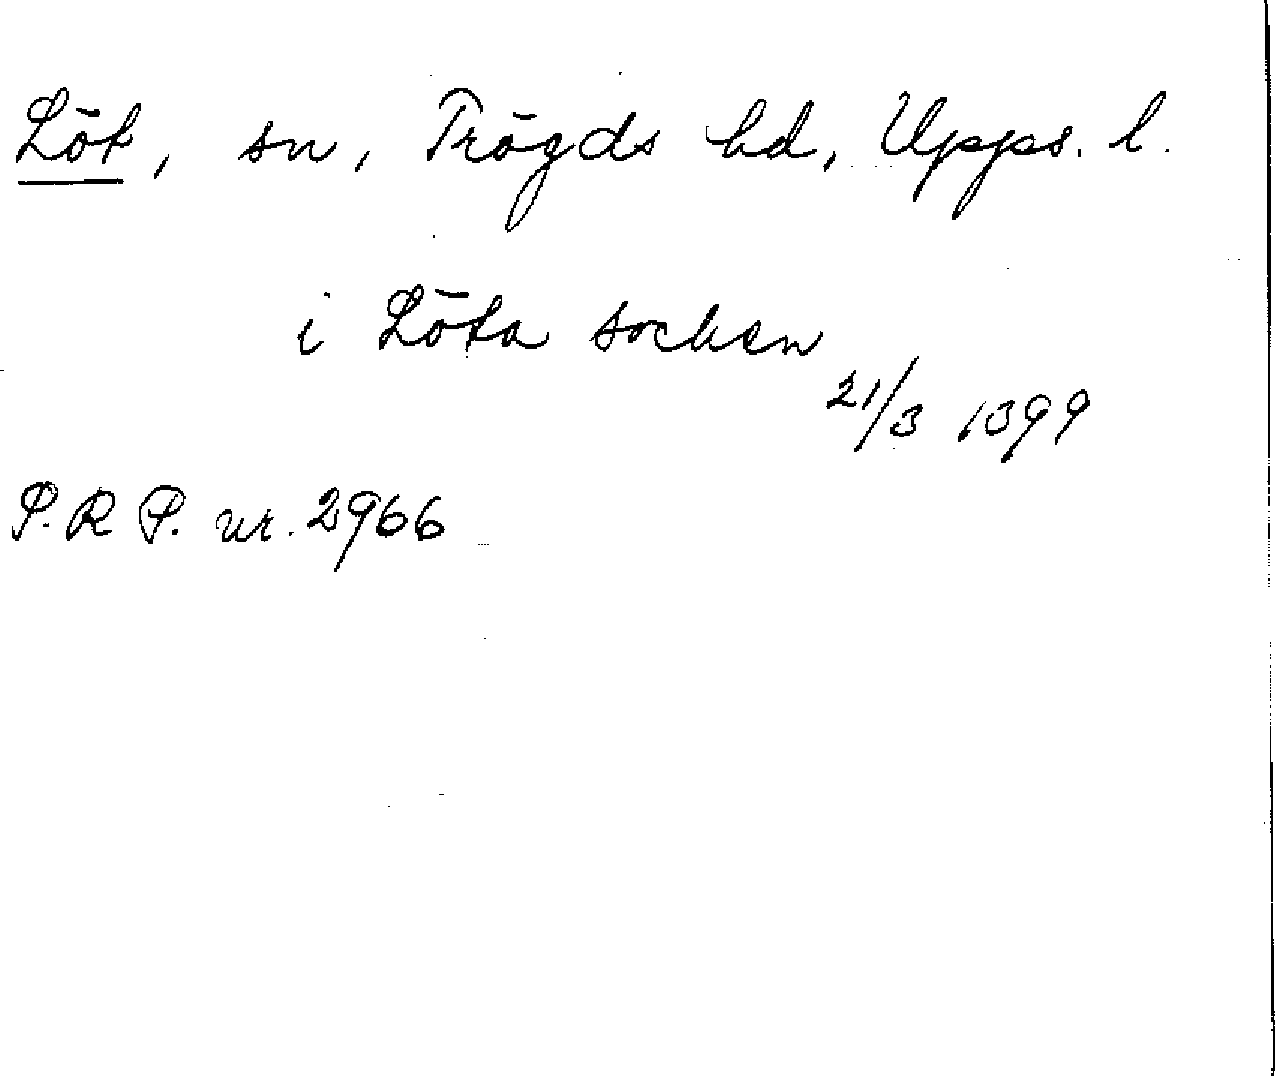 Löt, sn, Trögds hd, Upps. l.
i Löta socken
21/3 1399
P.R P. nr. 2966